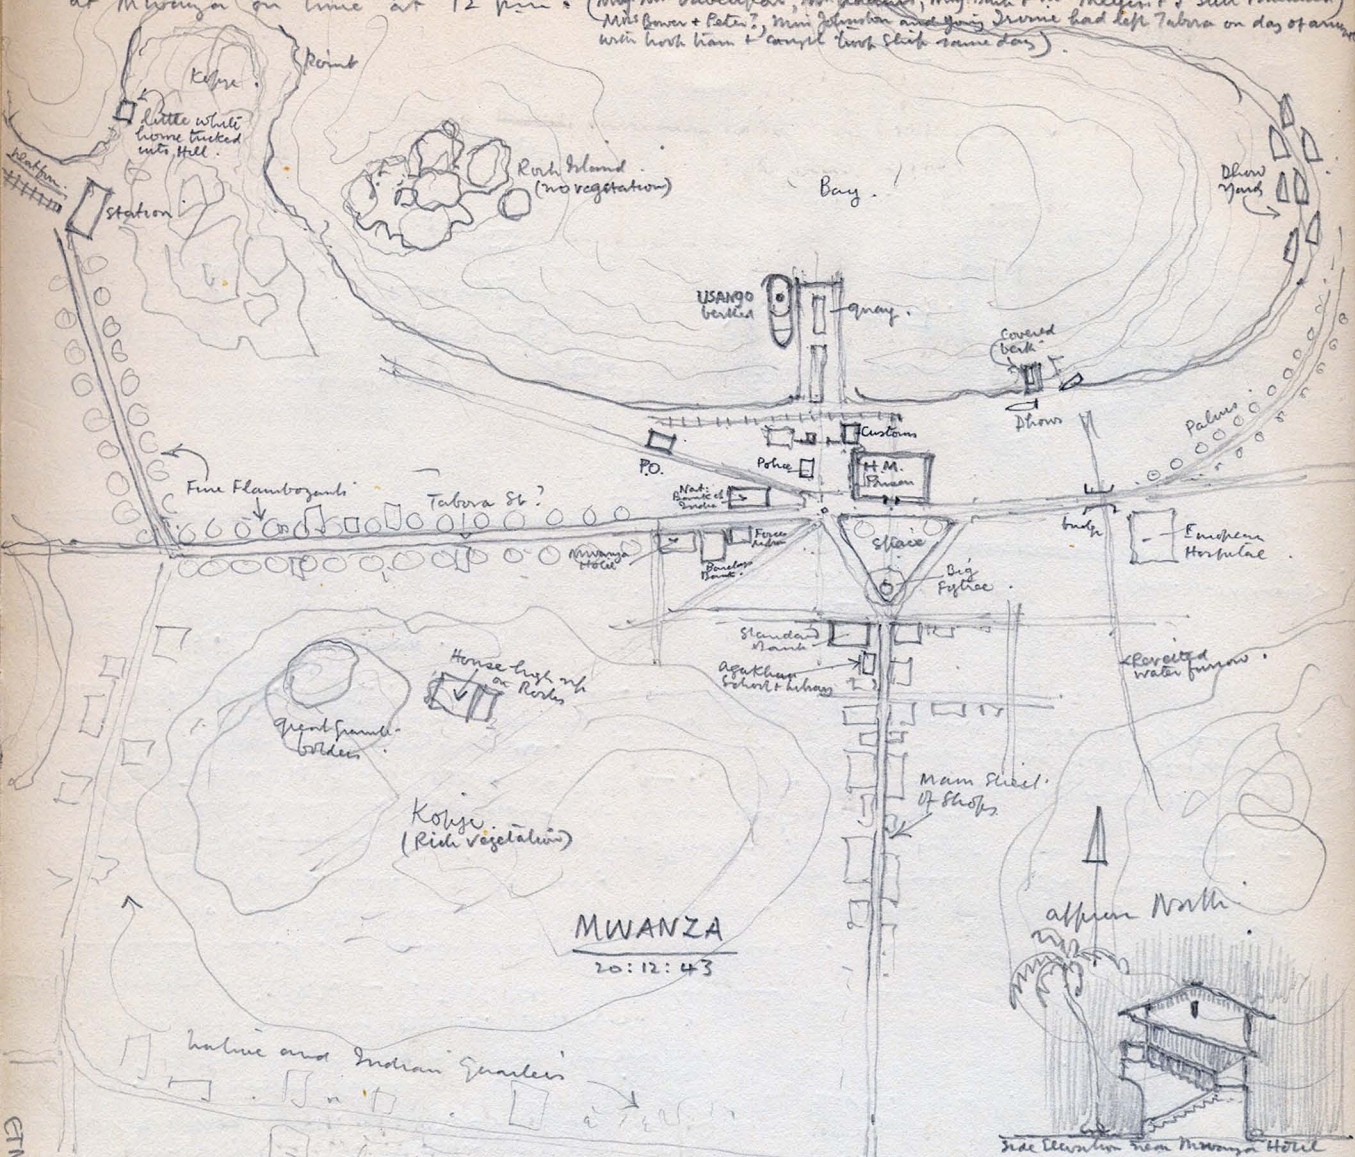 at Mwanza on time at 12 p.m. (
(Mrs Bower + Peter?, Miss Johnston and Irvine had left Tabora on day of
with took train + caught took ship same day).
Point
Kopje.
little white
house tucked
into Hill.
station
Rock Island
(no vegetation)
Bay.
Dhow
Yards
USANGO
berthed
quay.
Covered
berth
Dhows
Palms
Customs
P.O.
Police
H.M.
Prison
Nat.
Bank of
India
Fine Flamboyants
Tabora St?
Mwanza
Hotel
Barclays
Bank.
Space
bridge
European
Hospital.
Big
Figtree.
Standard
Bank
Aga Khan
School + Library
Revetted
water furrow.
House high up
on Rocks
great granite
bolders
Kopje
(Rich vegetation)
Main Street
of Shops
MWANZA
20:12:43
approx North
Native and Indian Quarters
Side Elevation near Mwanza Hotel